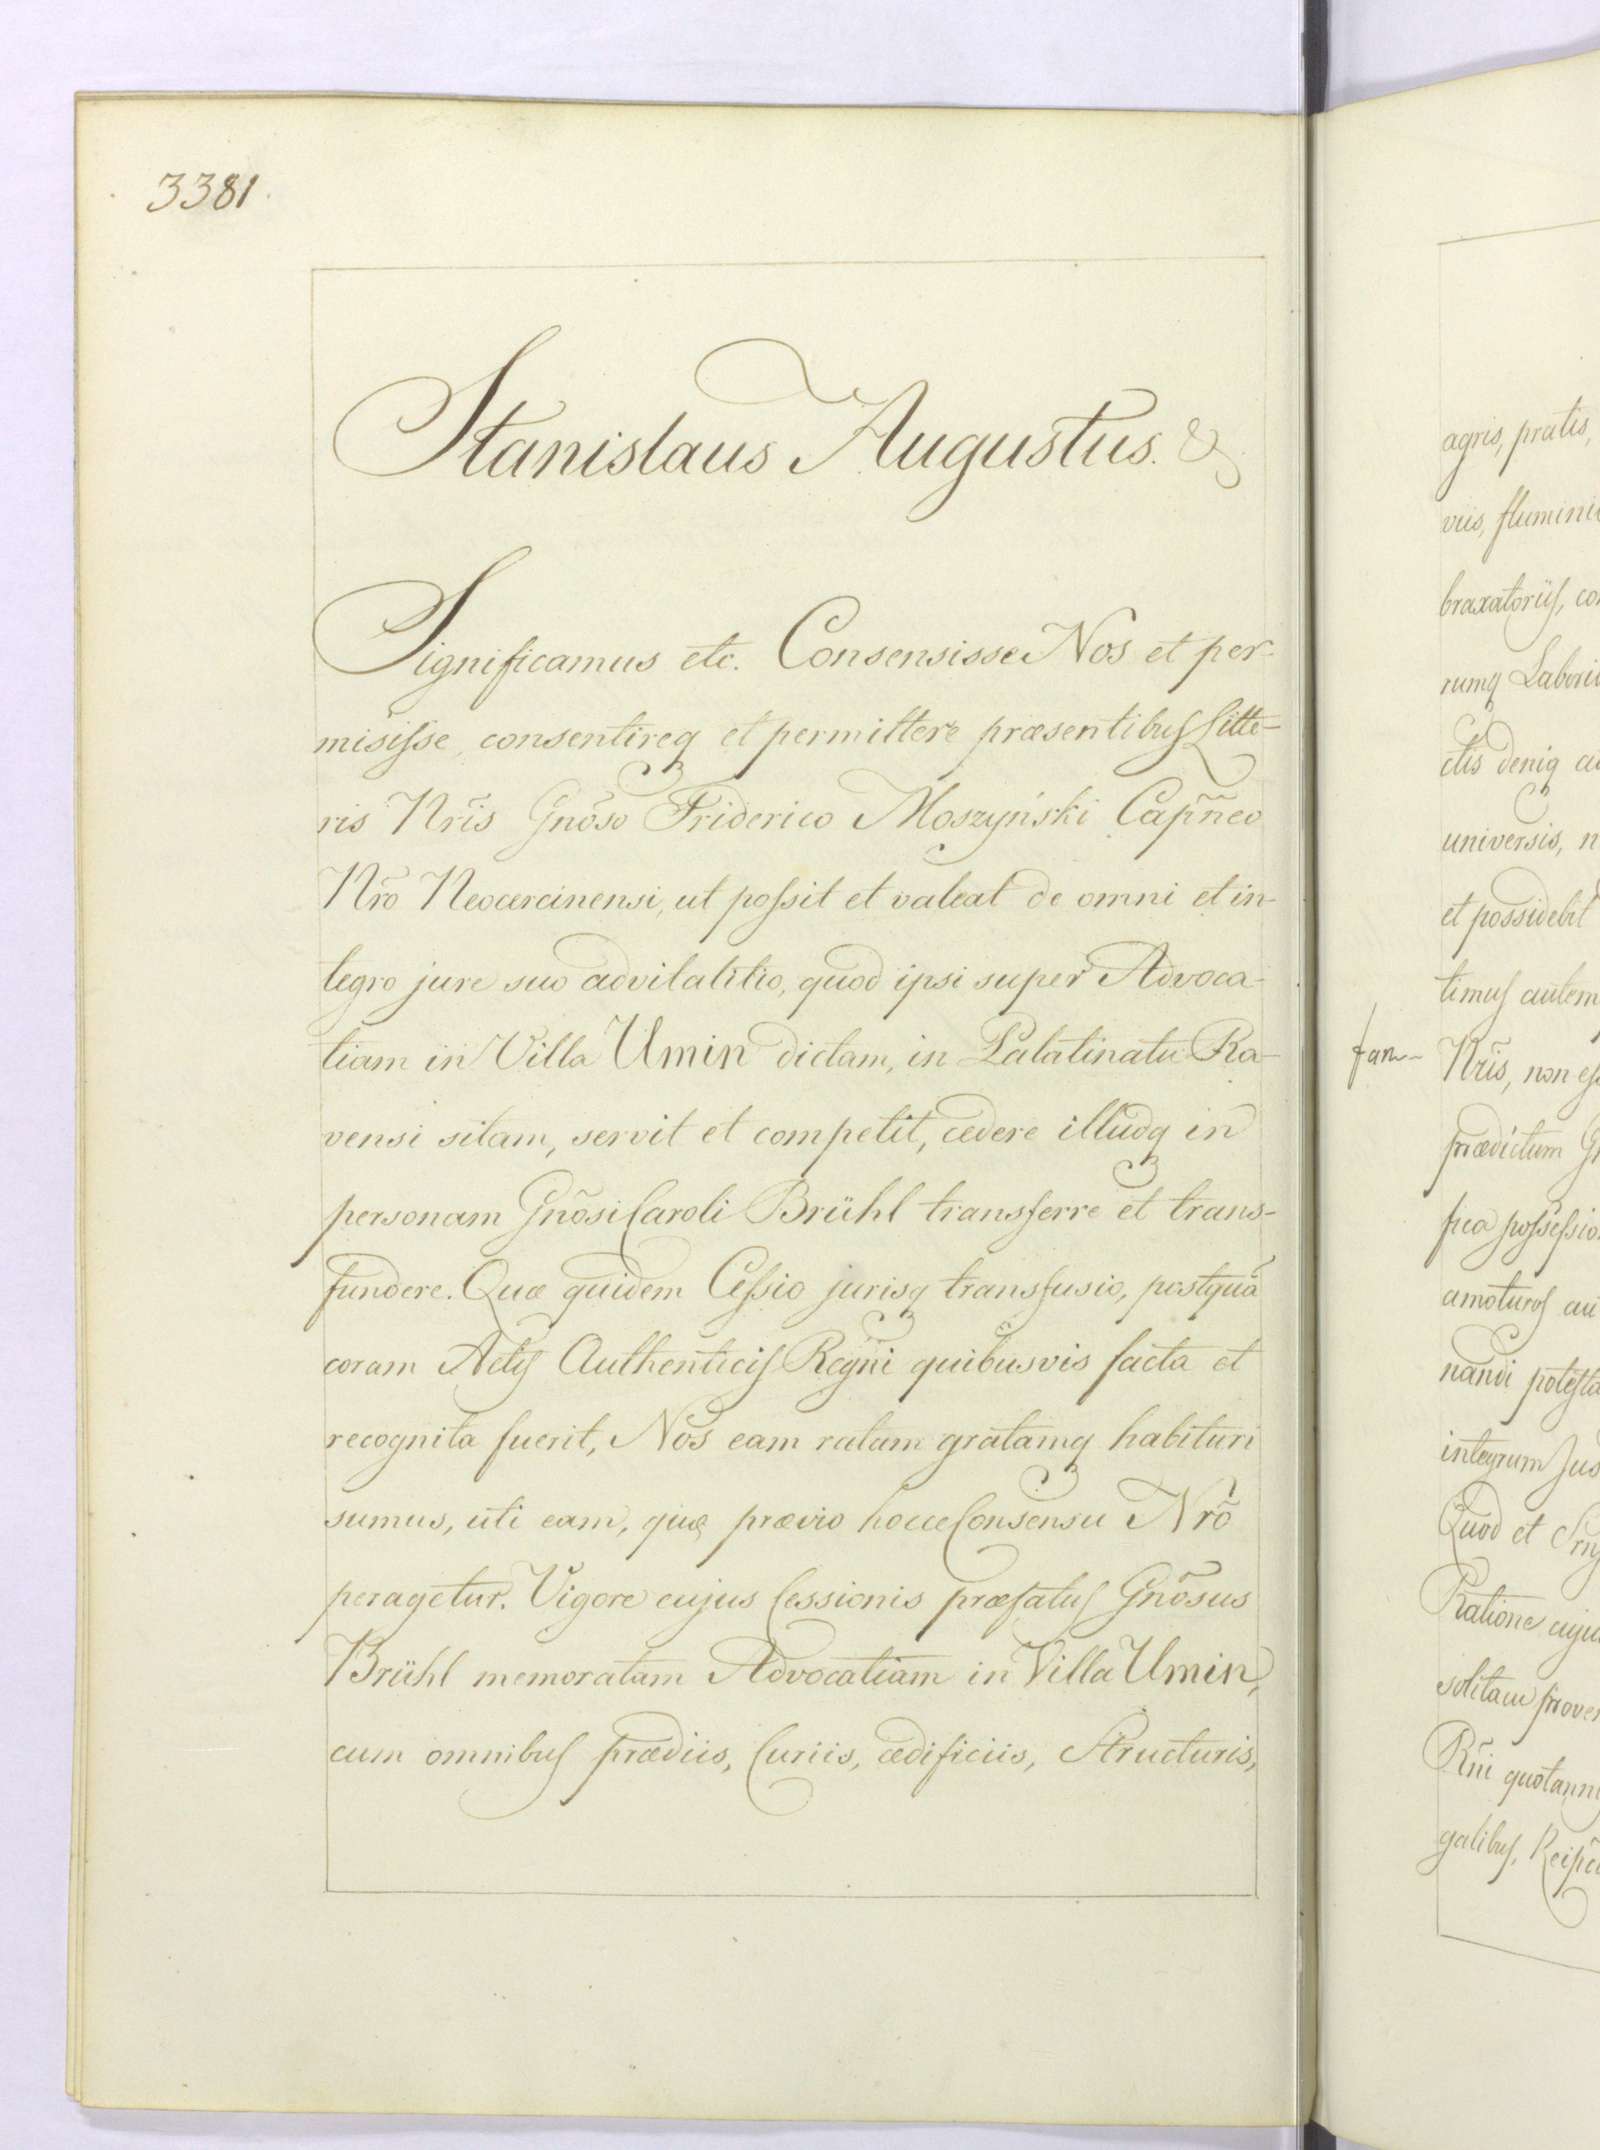 3381.
Stanislaus Augustus. &
Significamus etc. Consensisse Nos et per-
misisse, consentireq et permittere præsentibus Litte-
ris Nr̃is Gnõso Friderico Moszyński Cap̃neo
Nrõ Neocercinensi, ut possit et valeat de omni et in-
tegro jure suo advitalitio, quod ipsi super Advoca-
tiam in Villa Umin dictam, in Palatinatu Ra-
vensi sitam, servit et competit, cedere illudq in
personam Gnõsi Caroli Brühl transferre et trans-
fundere. Quæ quidem Cessio jurisq transfusio, postquã
coram Actis Authenticis Regni quibusvis facta et
recognita fuerit, Nos eam ratam gratamq habituri
sumus, uti eam, quæ prævio hocce Consensu Nrõ
peragetur. Vigore cujus Cessionis præfatus Gnõsus
Brühl memoratam Advocatiam in Villa Umin,
cum omnibus prædiis, Curiis, ædificiis, Structuris,
agris, pratis,
braxatoriis,
rumq
ctis deniq
universis,
et possidebit
timus autem
Nr̃is, non
prædictum
amoturos
nandi
integrum Jus
Quod et
Ratione
solitam
quotannis
galibus,